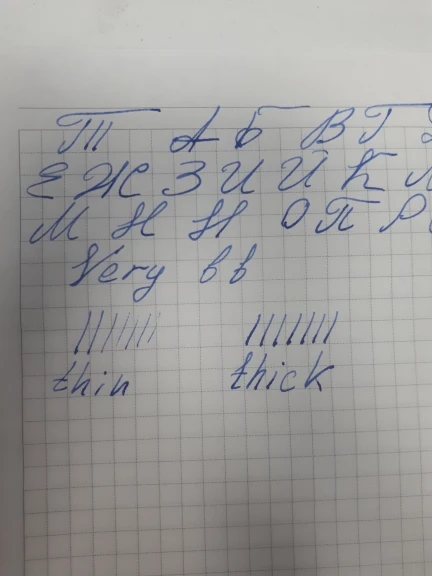 Т А Б В Г Д
Е Ж З И Й К Л
М Н Н О П Р
Very в в
thin thick